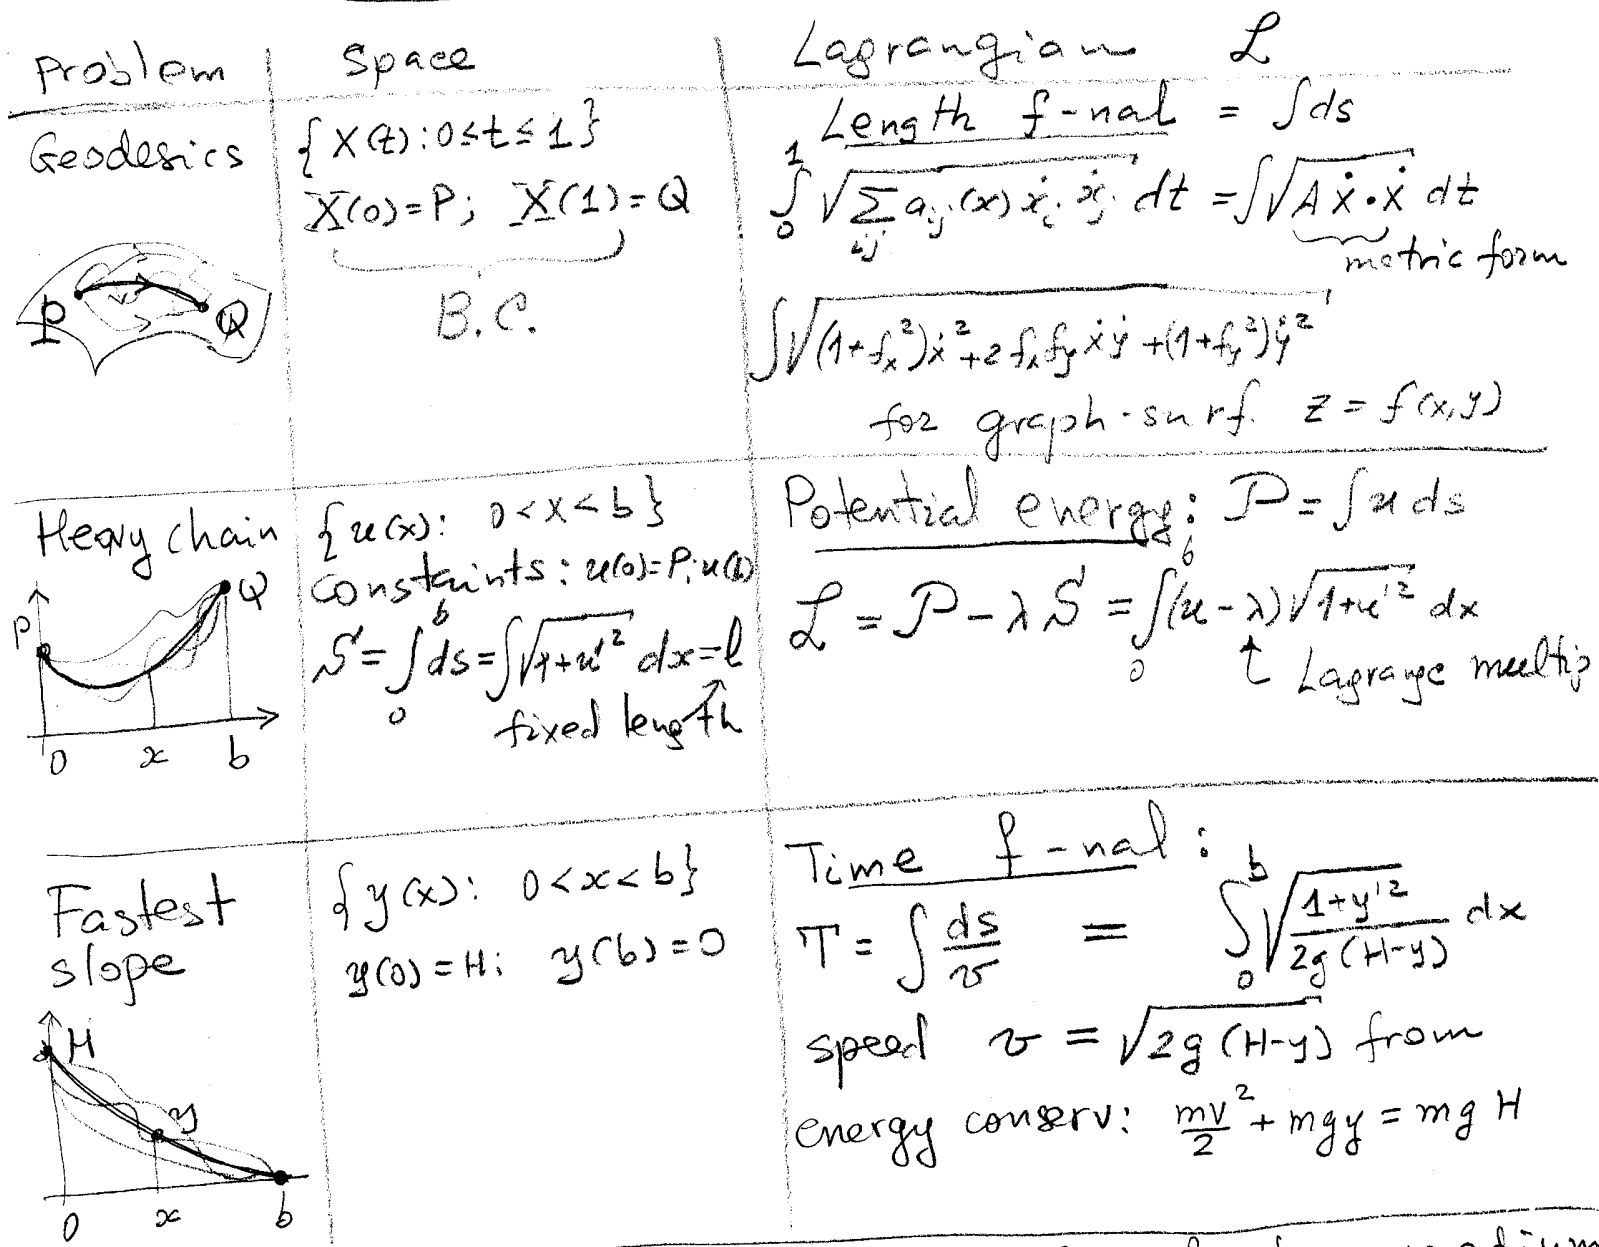 Problem Space Lagrangian ℒ
Geodesics
{X(t): 0≤t≤1}
X(0)=P; X(1)=Q
B.C.
P Q
Length f-nal = ∫ds
∫₀¹ √(∑ᵢⱼ aᵢⱼ(x) ẋᵢ ẋⱼ) dt = ∫√(Aẋ·ẋ) dt
metric form
∫√((1+fₓ²)ẋ²+2fₓf_yẋẏ+(1+f_y²)ẏ²)
for graph-surf. z = f(x,y)
Heavy chain
P Q
0 x b
{u(x): 0<x<b}
constaints: u(0)=P; u(b)
S = ∫₀ᵇ ds = ∫√(1+u'²) dx = l
fixed length
Potential energy: P = ∫u ds
ℒ = P - λS = ∫₀ᵇ (u-λ)√(1+u'²) dx
↑ Lagrange multip
Fastest
slope
H
y
0 x b
{y(x): 0<x<b}
y(0)=H; y(b)=0
Time f-nal:
T = ∫ ds/v = ∫₀ᵇ √((1+y'²)/(2g(H-y))) dx
speed v = √(2g(H-y)) from
energy conserv: mv²/2 + mgy = mgH